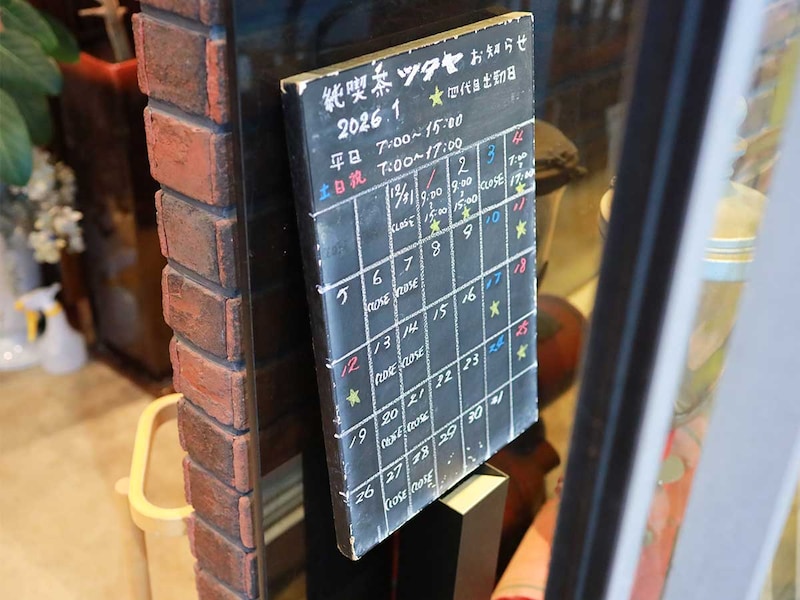 純喫茶 ツタヤ お知らせ
2026.1 ★四代目出勤日
平日 7:00～15:00
土日祝 7:00～17:00
12/31 1 2 3 4
CLOSE 9:00～15:00 9:00～15:00 CLOSE 7:00～17:00
★ ★ ★
5 6 7 8 9 10 11
CLOSE CLOSE ★
12 13 14 15 16 17 18
★ CLOSE CLOSE ★
19 20 21 22 23 24 25
CLOSE CLOSE ★
26 27 28 29 30 31
CLOSE CLOSE